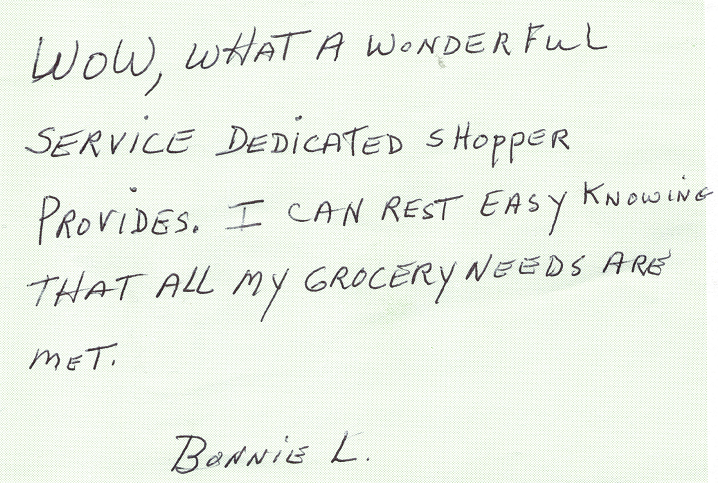 WOW, WHAT A WONDERFUL
SERVICE DEDICATED SHOPPER
PROVIDES. I CAN REST EASY KNOWING
THAT ALL MY GROCERY NEEDS ARE
MET.
BONNIE L.